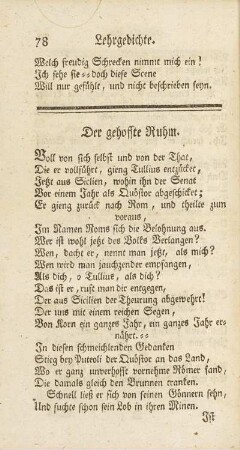 78 Lehrgedichte.
Welch freudig Schrecken nimmt mich ein!
Ich sehe sie == doch diese Scene
Will nur gefühlt, und nicht beschrieben seyn.
Der gehoffte Ruhm.
Voll von sich selbst und von der That,
Die er vollführt, gieng Tullius entzücket,
Jetzt aus Sicilien, wohin ihn der Senat
Vor einem Jahr als Quästor abgeschicket;
Er gieng zurück nach Rom, und theilte zum
voraus,
Im Namen Roms sich die Belohnung aus.
Wer ist wohl jetzt des Volks Verlangen?
Wen, dacht er, nennt man jetzt, als mich?
Wen wird man jauchzender empfangen,
Als dich, o Tullius, als dich?
Das ist er, ruft man dir entgegen,
Der aus Sicilien der Theurung abgewehrt!
Der uns mit einem reichen Segen,
Von Korn ein ganzes Jahr, ein ganzes Jahr er-
nährt.==
In diesen schmeichlenden Gedanken
Stieg bey Puteoli der Quästor an das Land,
Wo er ganz unverhofft vornehme Römer fand,
Die damals gleich den Brunnen tranken.
Schnell ließ er sich von seinen Gönnern sehn,
Und suchte schon sein Lob in ihren Minen.
Ist